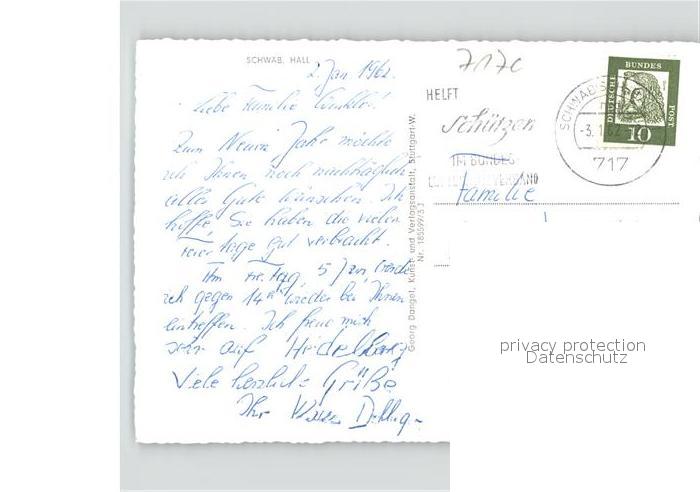 SCHWÄB. HALL
2. Jan 1962.
Liebe Familie Winkler!
Zum Neuen Jahr möchte
ich Ihnen noch nachträglich
alles Gute wünschen. Ich
hoffe, Sie haben die vielen
Feiertage gut verbracht.
Am Freitag, 5 Jan werde
ich gegen 14 wieder bei Ihnen
eintreffen. Ich freue mich
sehr auf Heidelberg
Viele herzliche Grüße
Ihr
Georg Dangel, Kunst- und Verlagsanstalt, Stuttgart-W.
Nr.
7170
HELFT
schützen
IM BUNDES
VERBAND
SCHWÄBISCH HALL
-3.1.62
717
DEUTSCHE
BUNDES
POST
10
Familie
privacy protection
Datenschutz